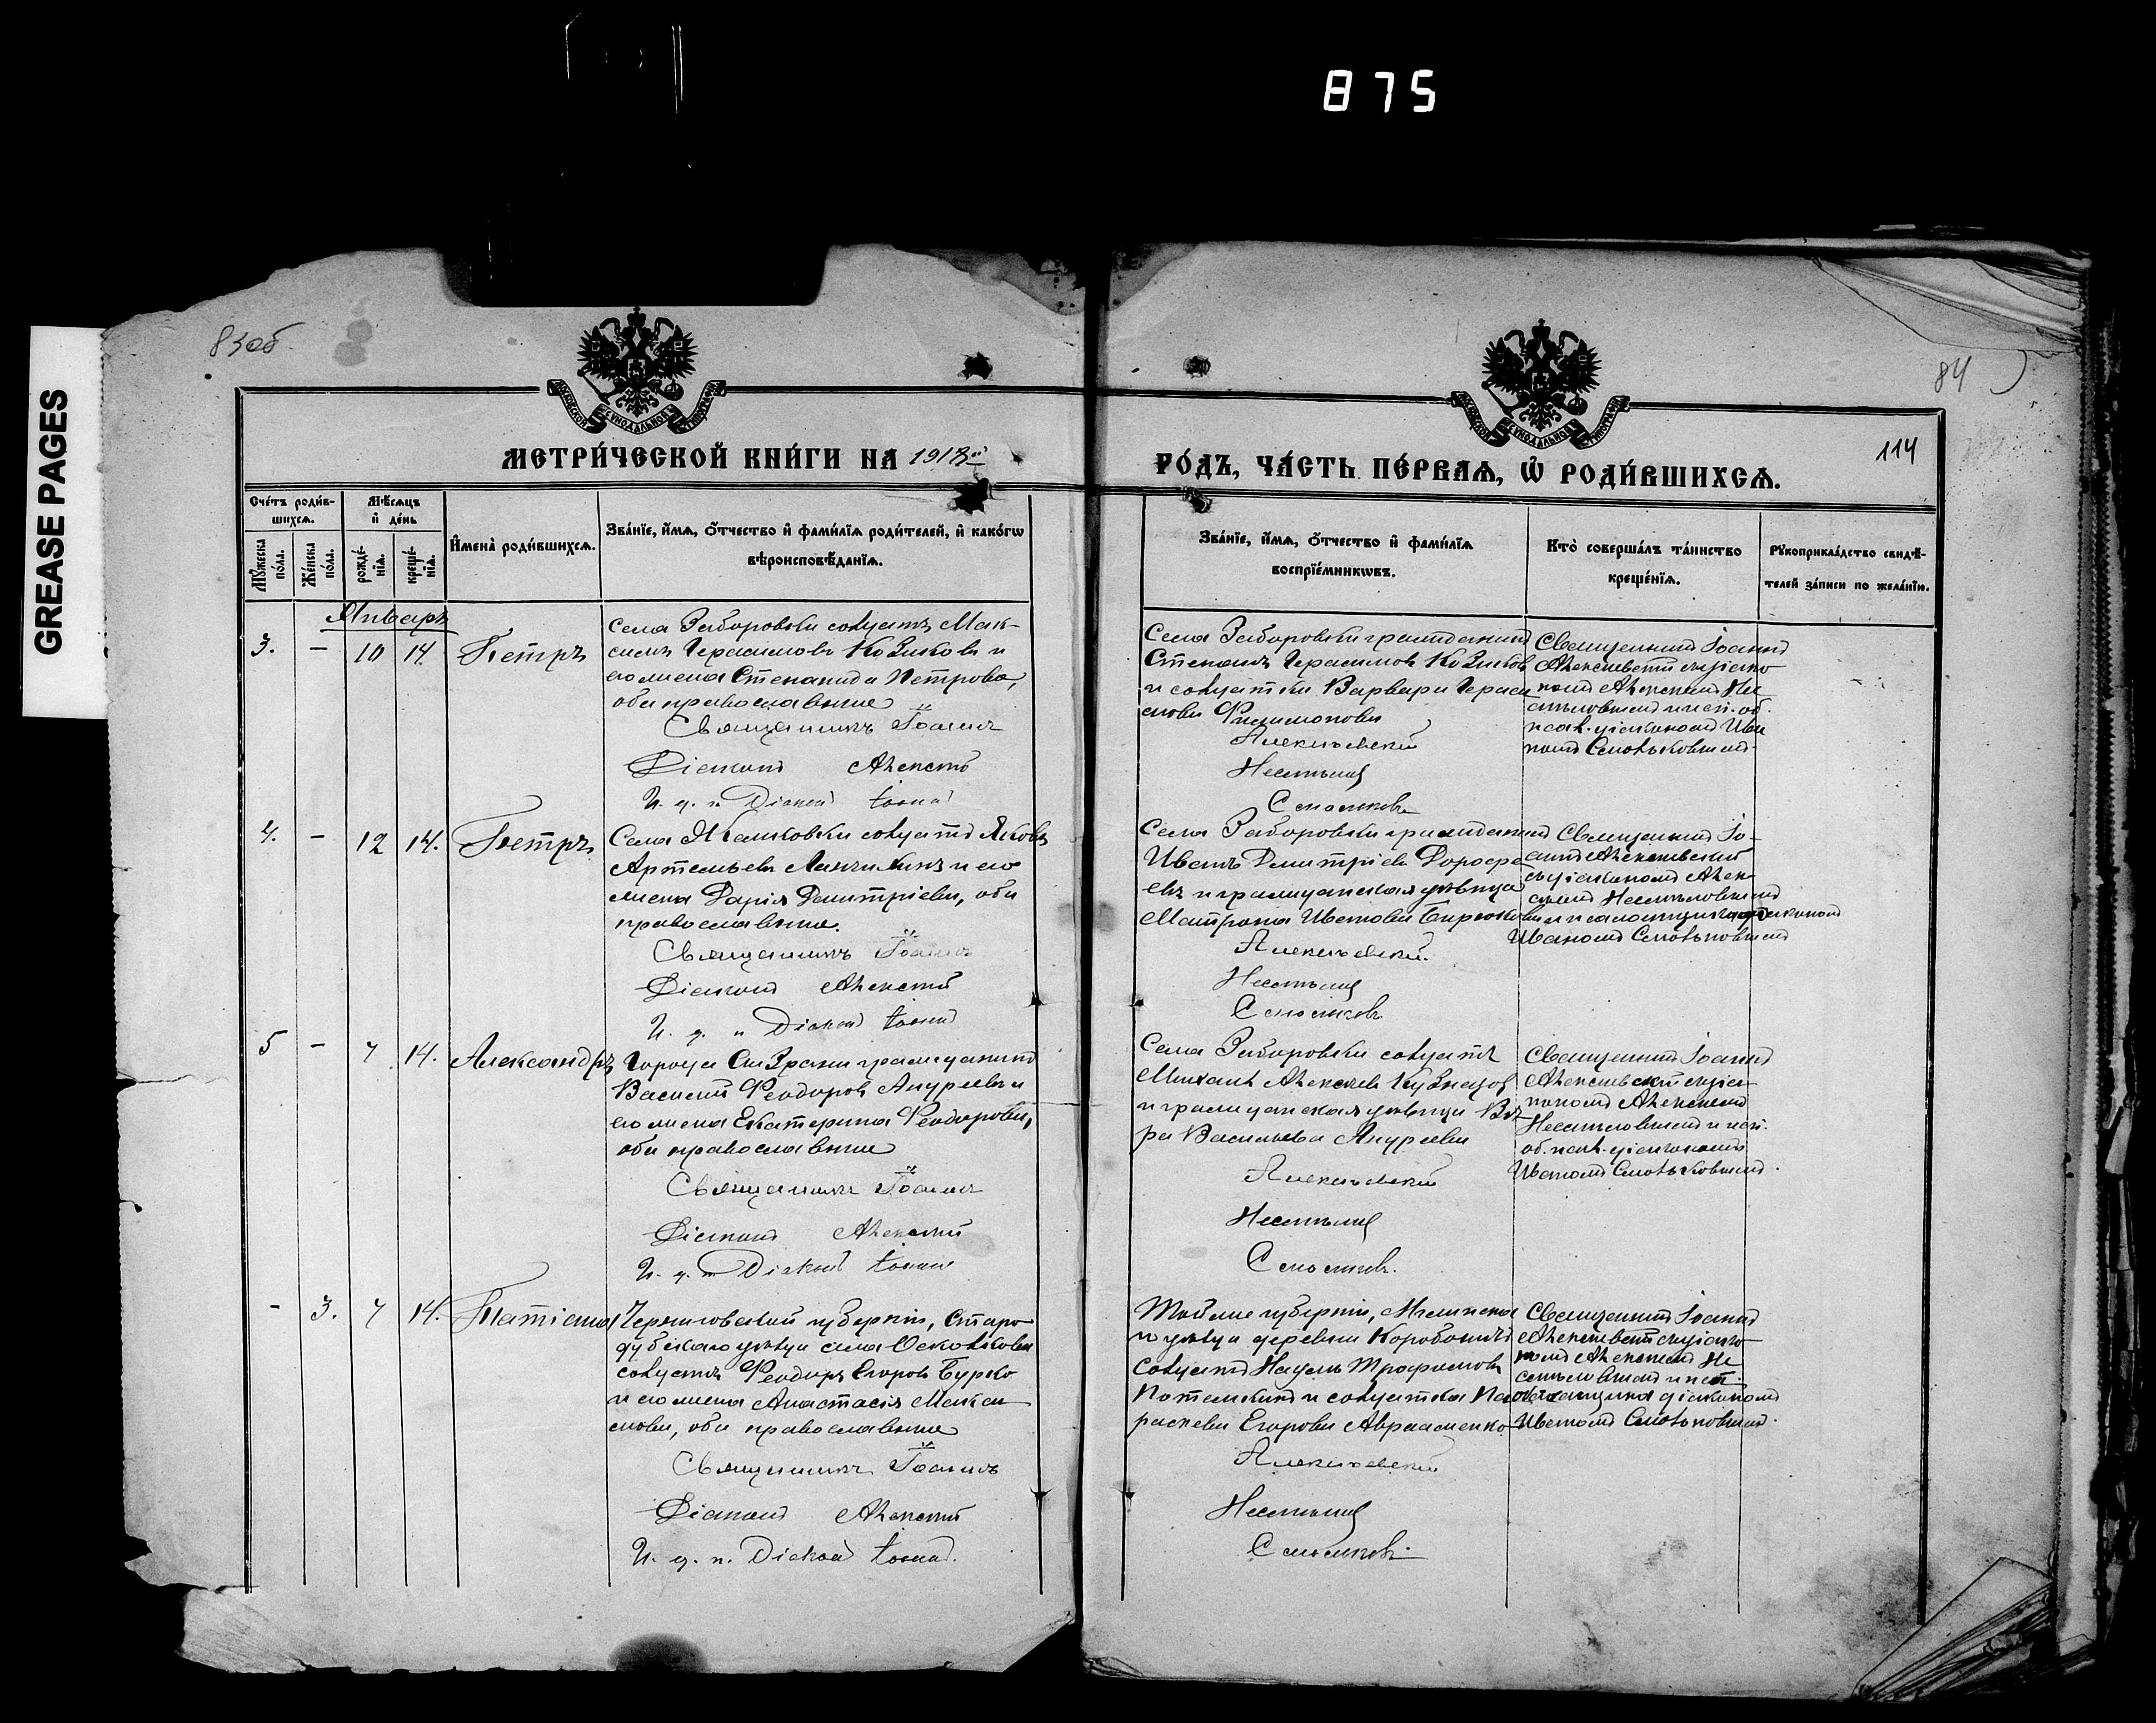 875
GREASE PAGES
83об
84
114
МЕТРИ́ЧЕСКОЙ КНИ́ГИ НА 1918й
РО́ДЪ, ЧА́СТЬ ПЕ́РВАѦ, Ѡ҆ РОДИ́ВШИХСѦ.
Сче́тъ роди́в-
шихсѧ.
Мѣ́сѧцъ
и҆ де́нь
Мꙋ́жеска по́ла.
Же́нска по́ла.
рожде́-
нїѧ.
креще́-
нїѧ.
И҆мена̀ роди́вшихсѧ.
Зва́нїе, и҆́мѧ, ѻ҆́тчество и҆ фами́лїѧ роди́телей, и҆ како́гѡ
вѣроисповѣ́данїѧ.
Зва́нїе, и҆́мѧ, ѻ҆́тчество и҆ фами́лїѧ
воспрїе́мникѡвъ.
Кто̀ соверша́лъ та́инство
креще́нїѧ.
Рꙋкоприкла́дство свидѣ́-
телей за́писи по жела́нїю.
Январь
3. - 10 14. Петръ
Села Заборовки солдатъ Мак-
симъ Герасимовъ Козиковъ и
его жена Степанида Петрова,
оба православные
Священникъ Іоаннъ
Діаконъ Алексѣй
И. д. п. Діаконъ Іоаннъ
Села Заборовки гражданинъ
Степанъ Герасимовъ Козиковъ
и солдатка Варвара Гераси
мова Филимонова
Алексѣевскій
Несмѣловъ
Смольковъ
Священникъ Іоаннъ
Алексѣевскій съ діако
номъ Алексѣемъ Не
смѣловымъ и исп. об.
псал. діакономъ Ива
номъ Смольковымъ.
4. - 12 14. Петръ
Села Жемковки солдатъ Яковъ
Артемьевъ и его
жена Дарія Димитріева, оба
православные.
Священникъ Іоаннъ
Діаконъ Алексѣй
И. д. п. Діаконъ Іоаннъ
Села Заборовки гражданинъ
Иванъ Димитріевъ Дорофе
евъ и гражданская дѣвица
Матрона Иванова Бирюкова
Алексѣевскій.
Несмѣловъ
Смольковъ
Священникъ Іо-
аннъ Алексѣевскій
съ діакономъ Алек-
сѣемъ Несмѣловымъ
и псаломщикомъ діакономъ
Иваномъ Смольковымъ
5 - 7 14. Александръ
Города Сызрани гражданинъ
Василій Феодоровъ Андреевъ и
его жена Екатерина Феодорова,
оба православные
Священникъ Іоаннъ
Діаконъ Алексѣй
И. д. п. Діаконъ Іоаннъ
Села Заборовки солдатъ
Михаилъ Алексѣевъ Кузнецовъ
и гражданская дѣвица Вѣ
ра Васильева Андреева
Алексѣевскій
Несмѣловъ
Смольковъ.
Священникъ Іоаннъ
Алексѣевскій съ діа-
кономъ Алексѣемъ
Несмѣловымъ и исп.
об. псал. діакономъ
Иваномъ Смольковымъ.
- 3. 7 14. Татіана
Черниговской губерніи, Старо
дубскаго уѣзда села
солдатъ Феодоръ Егоровъ Бурко
и его жена Анастасія Макси
мова, оба православные
Священникъ Іоаннъ
Діаконъ Алексѣй
И. д. п. Діаконъ Іоаннъ.
Той же губерніи, Мглинска
го уѣзда деревни
солдатъ Наумъ Трофимовъ
Потемкинъ и солдатка Па
раскева Егорова Авраменко
Алексѣевскій
Несмѣловъ
Смольковъ.
Священникъ Іоаннъ
Алексѣевскій съ діако
номъ Алексѣемъ Не
смѣловымъ и исп.
об. псаломщика діакономъ
Иваномъ Смольковымъ.